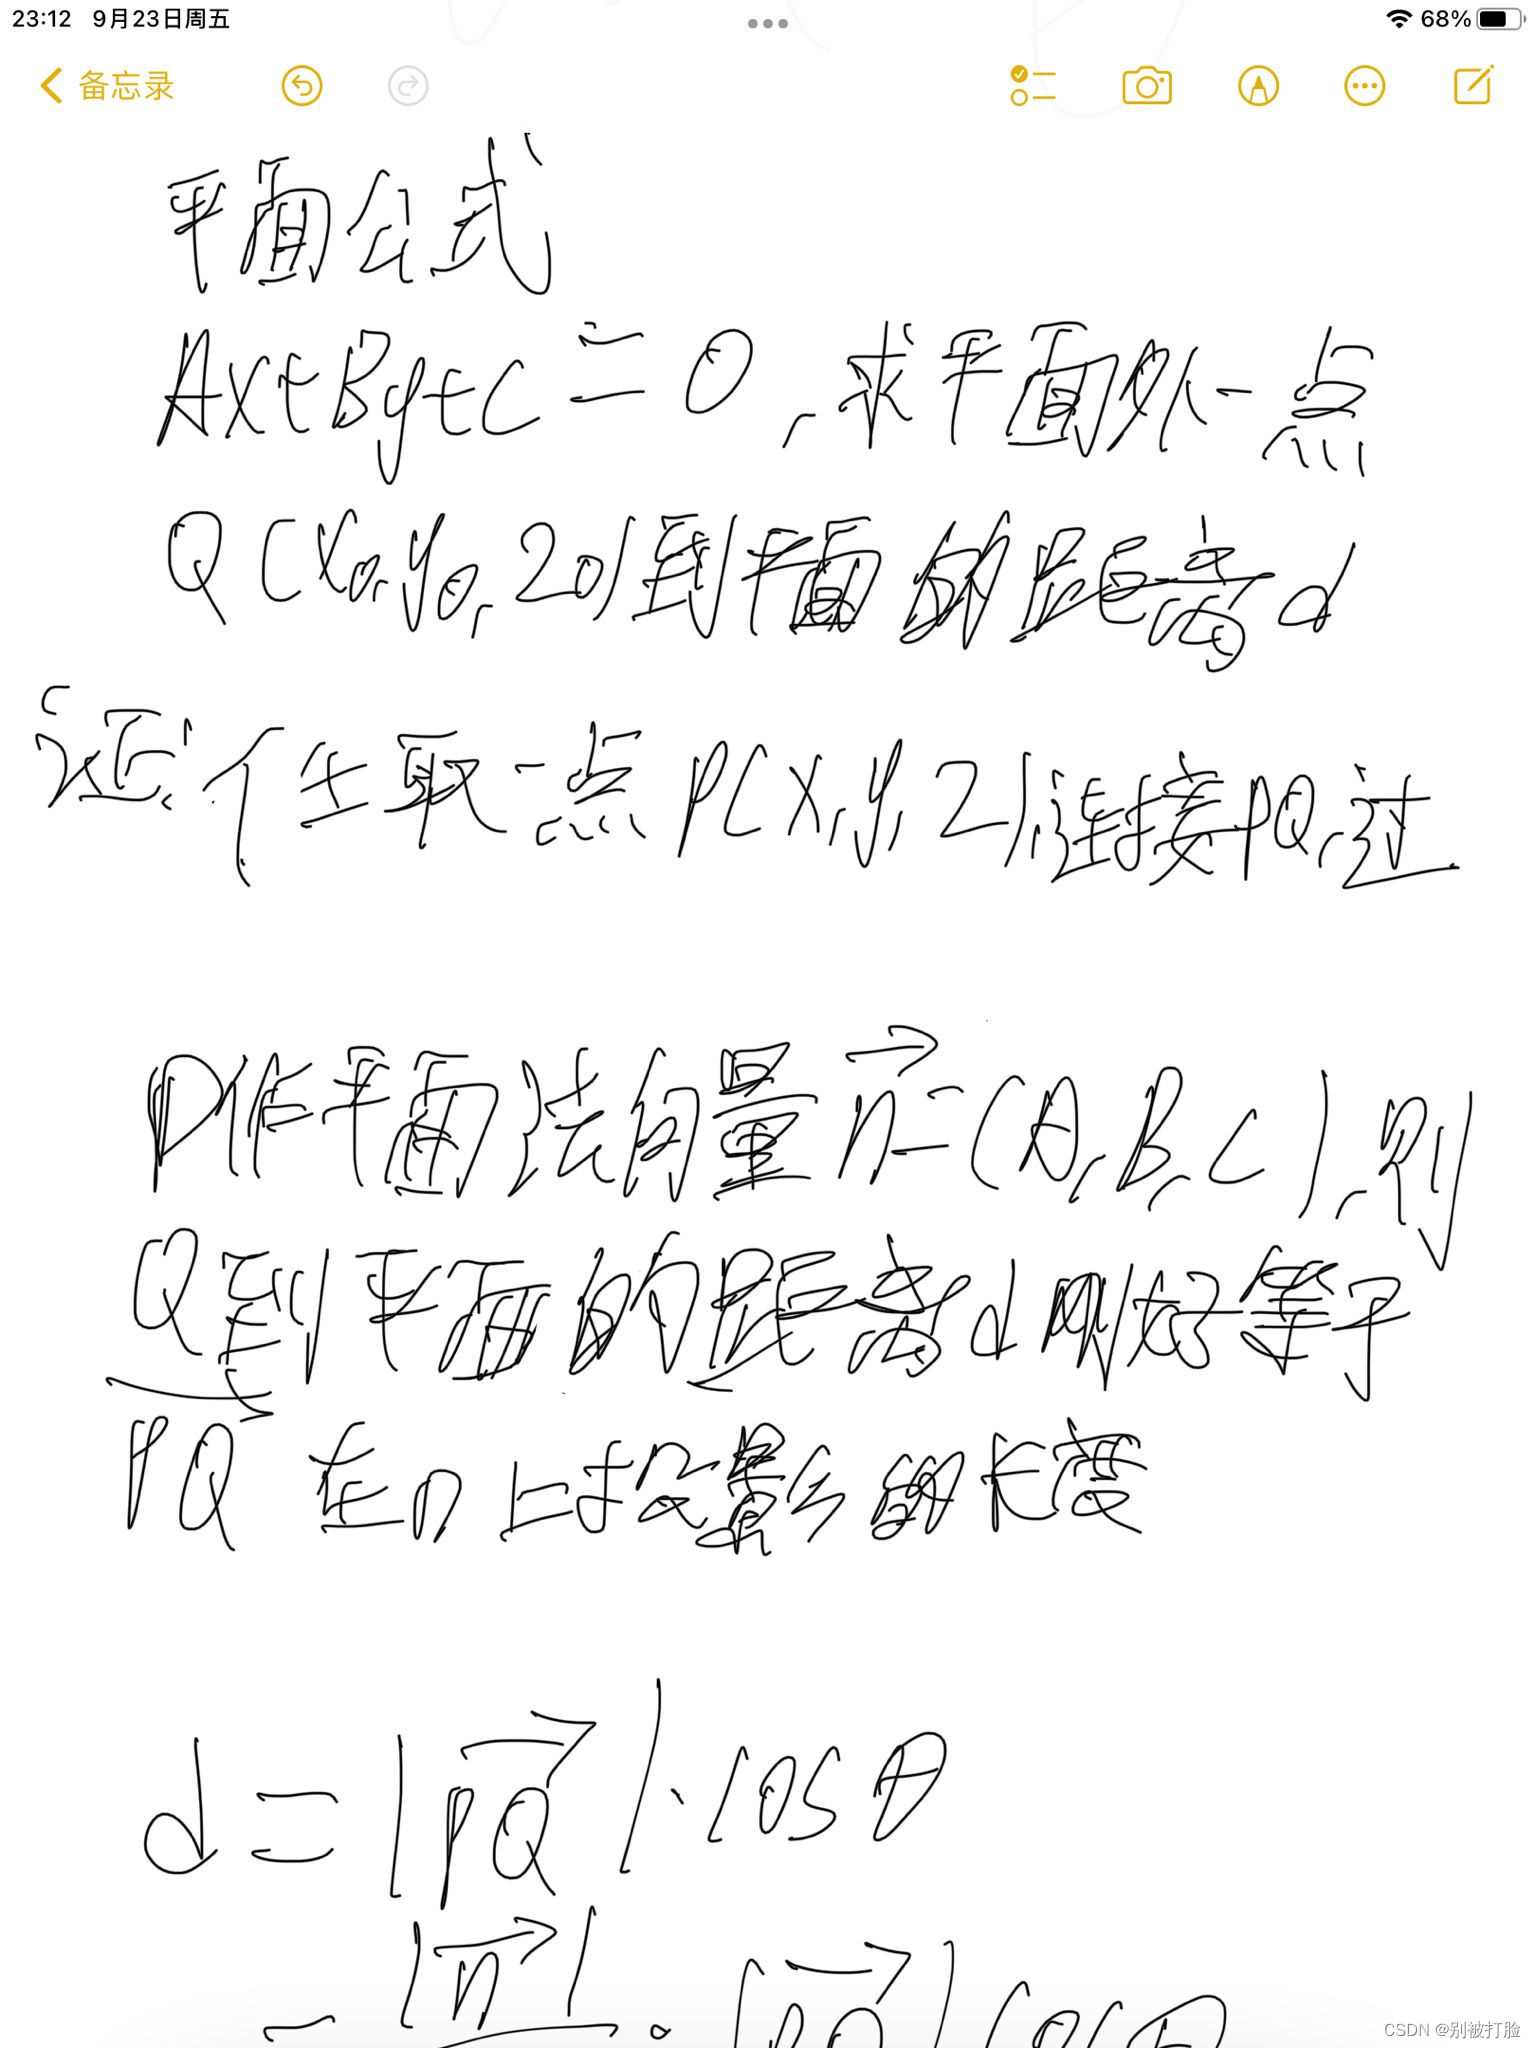 23:12 9月23日周五
68%
备忘录
平面公式
Ax+By+C=0,求平面外一点
Q(x0,y0,z0)到平面的距离d
证:任取一点P(x,y,z),连接PQ,过
P作平面法向量n=(A,B,C),则
Q到平面的距离d刚好等于
PQ在n上投影的长度
d=|PQ|·cosθ
=|n|·|PQ|cosθ
CSDN @别被打脸